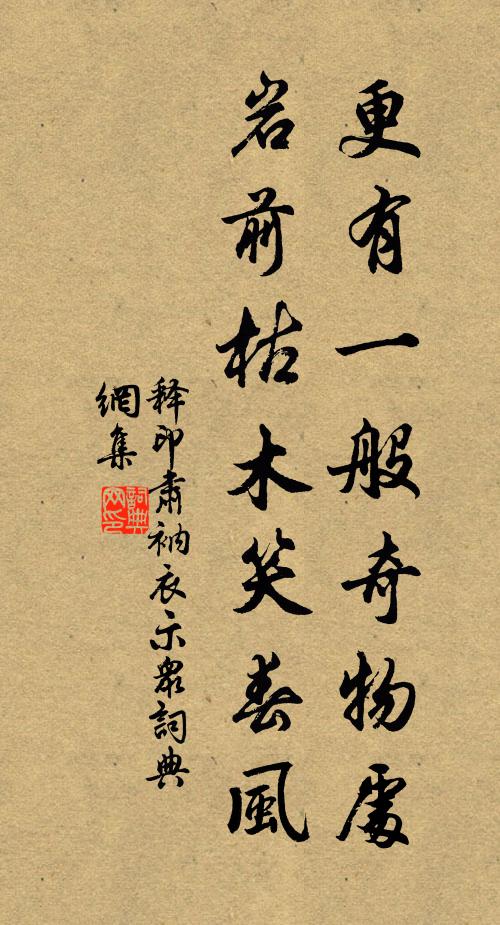 更有一般奇物處
岩前枯木笑春風
释印肅衲衣示眾詞典
網集
詞典
网印